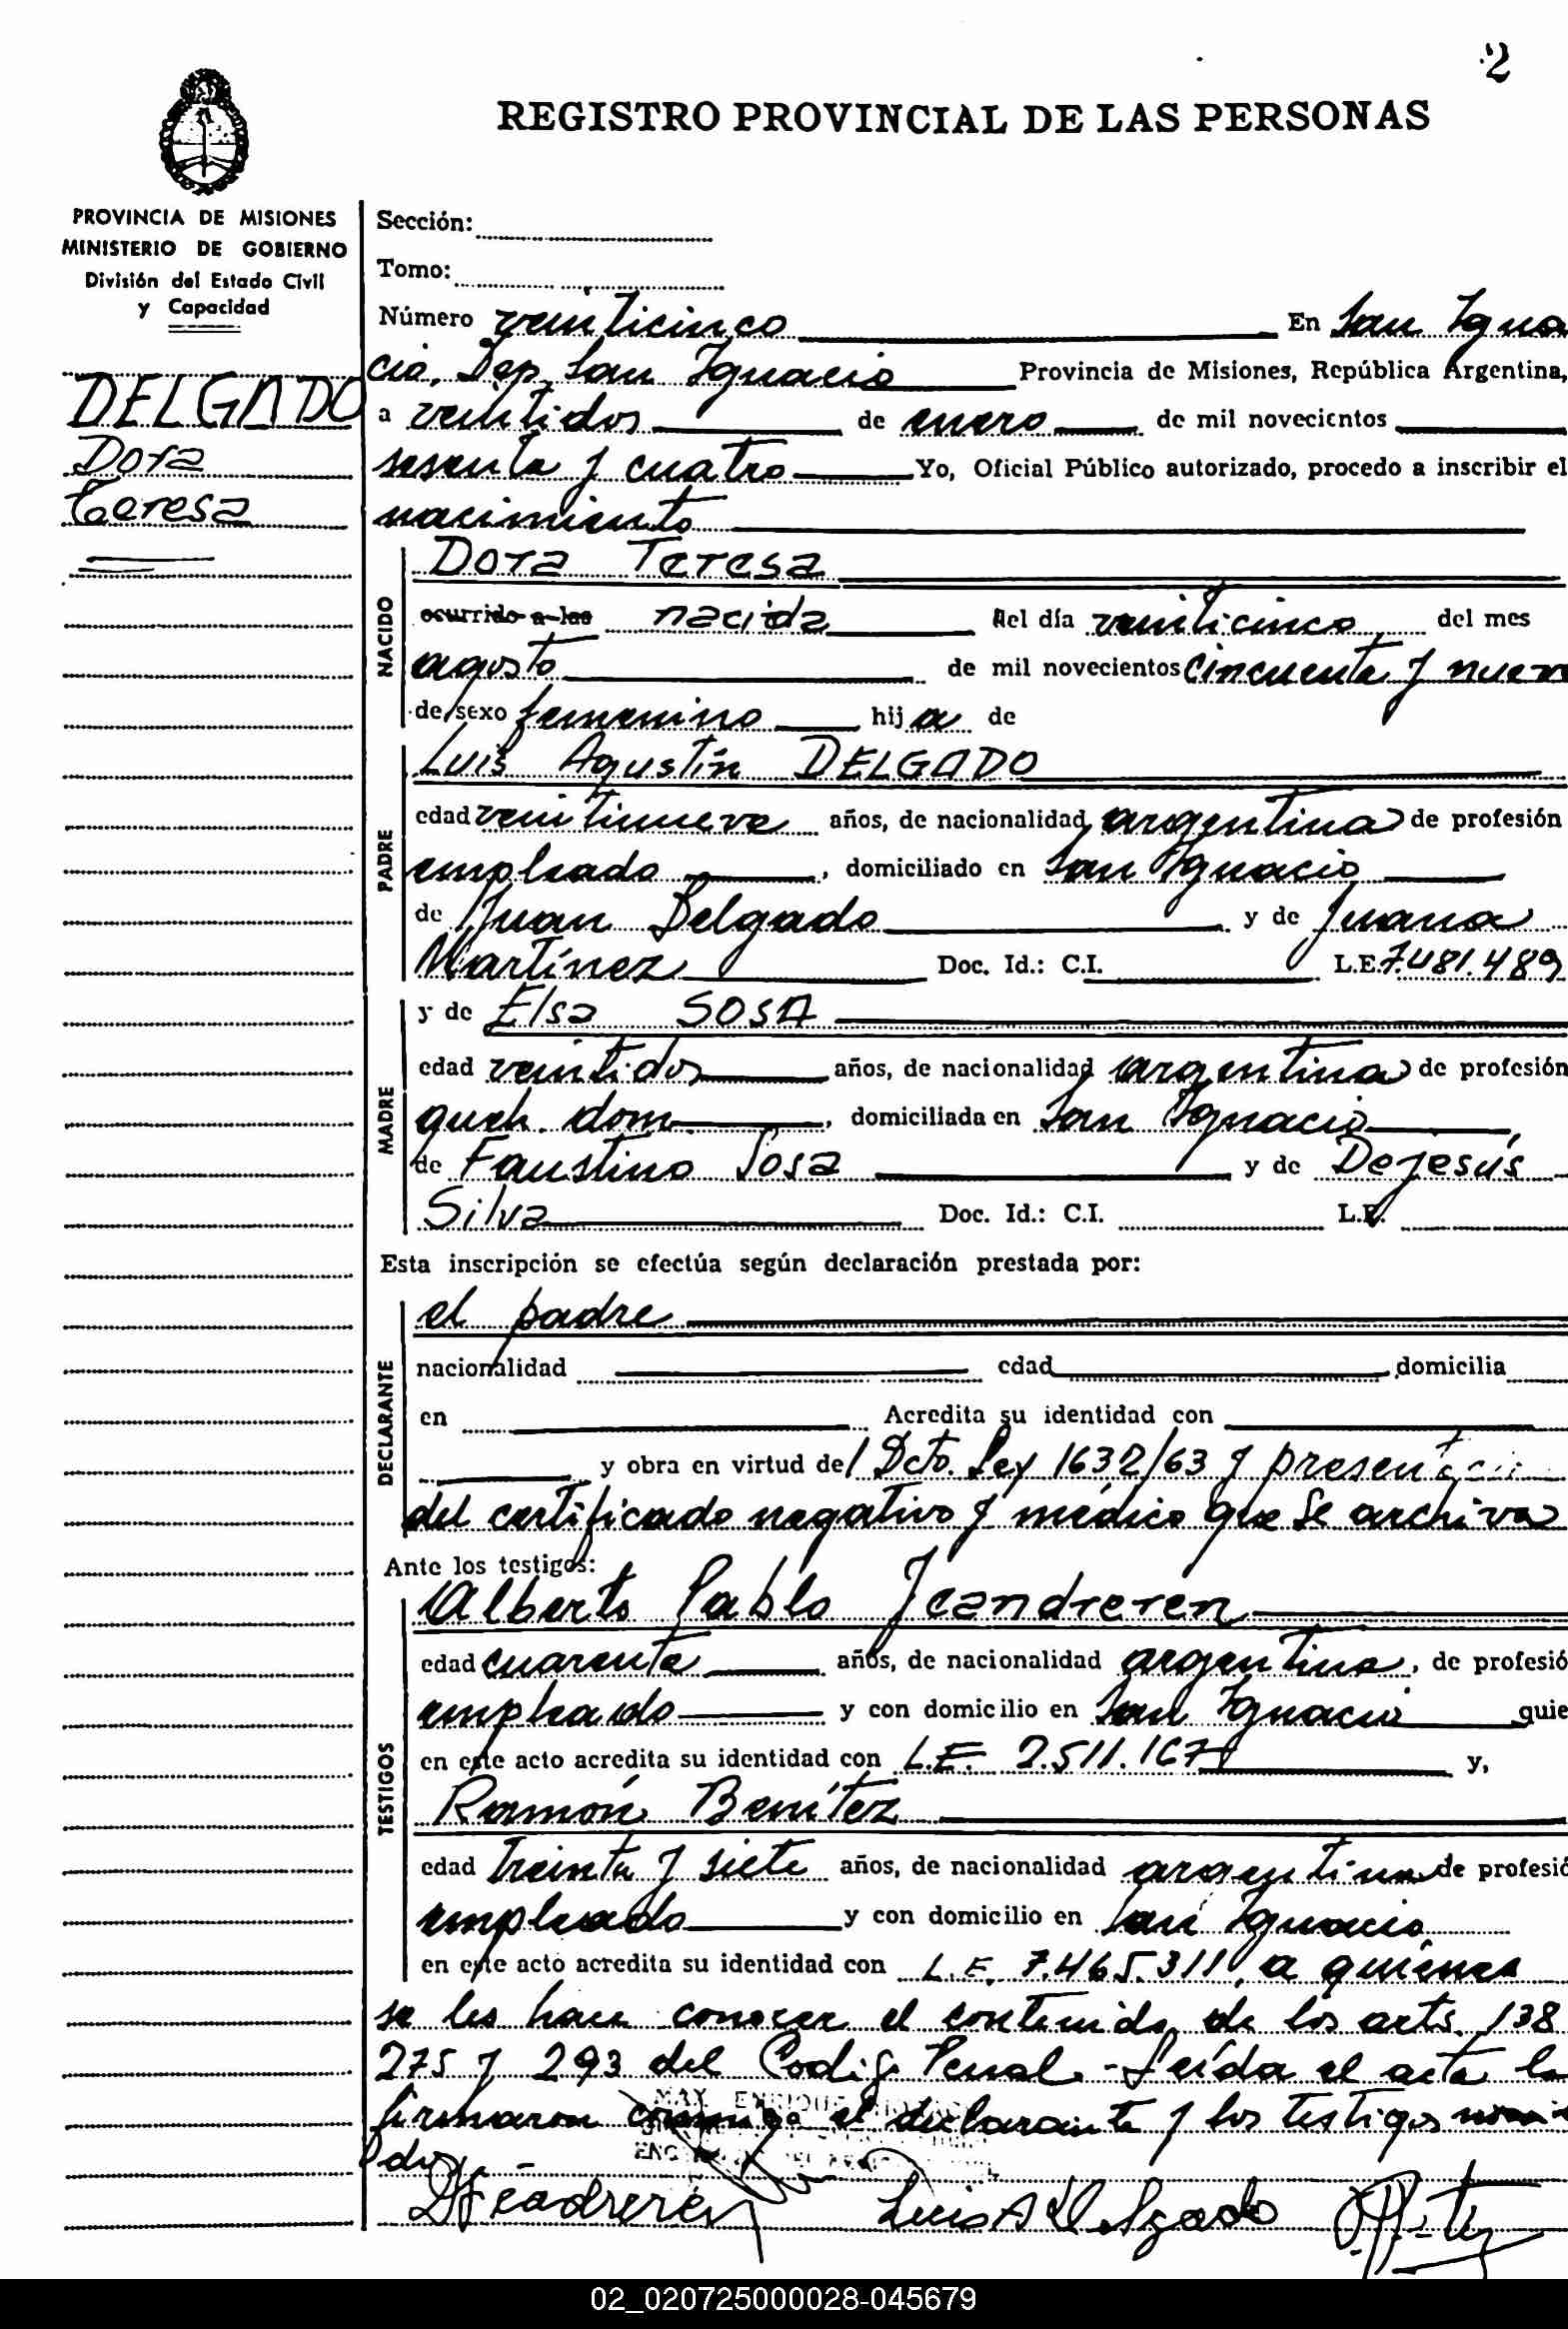 2
REGISTRO PROVINCIAL DE LAS PERSONAS
PROVINCIA DE MISIONES
MINISTERIO DE GOBIERNO
División del Estado Civil
y Capacidad
DELGADO
Dora
Teresa
Sección:
Tomo:
Número veinticinco En San Igna
cio, Dep. San Ignacio Provincia de Misiones, República Argentina,
a veintidos de enero de mil novecientos
sesenta y cuatro Yo, Oficial Público autorizado, procedo a inscribir el
nacimiento
NACIDO
Dora Teresa
ocurrido a las nacida del día veinticinco del mes
agosto de mil novecientos cincuenta y nueve
de sexo femenino hija de
PADRE
Luis Agustín DELGADO
edad veintinueve años, de nacionalidad argentina de profesión
empleado, domiciliado en San Ignacio
de Juan Delgado y de Juana
Martínez Doc. Id.: C.I. L.E. 7.481.489
MADRE
y de Elsa SOSA
edad veintidos años, de nacionalidad argentina de profesión
queh. dom., domiciliada en San Ignacio,
de Faustino Sosa y de Dejesús
Silva Doc. Id.: C.I. L.E.
Esta inscripción se efectúa según declaración prestada por:
DECLARANTE
el padre
nacionalidad edad domicilia
en Acredita su identidad con
y obra en virtud del Dcto. Ley 1632/63 y presentación
del certificado negativo y médico que se archiva
Ante los testigos:
TESTIGOS
Alberto Pablo Jeandreren
edad cuarenta años, de nacionalidad argentina, de profesió
empleado y con domicilio en San Ignacio quie
en este acto acredita su identidad con L.E. 2.511.167 y,
Ramón Benítez
edad treinta y siete años, de nacionalidad argentina de profesió
empleado y con domicilio en San Ignacio
en este acto acredita su identidad con L.E. 7.465.311, a quienes
se les hace conocer el contenido de los arts. 138
275 y 293 del Codigo Penal - Leída el acta la
firmaron conmigo el declarante y los testigos nom
dos
MAX ENRIQUE
Jeadreren Luis A Delgado
02_020725000028-045679